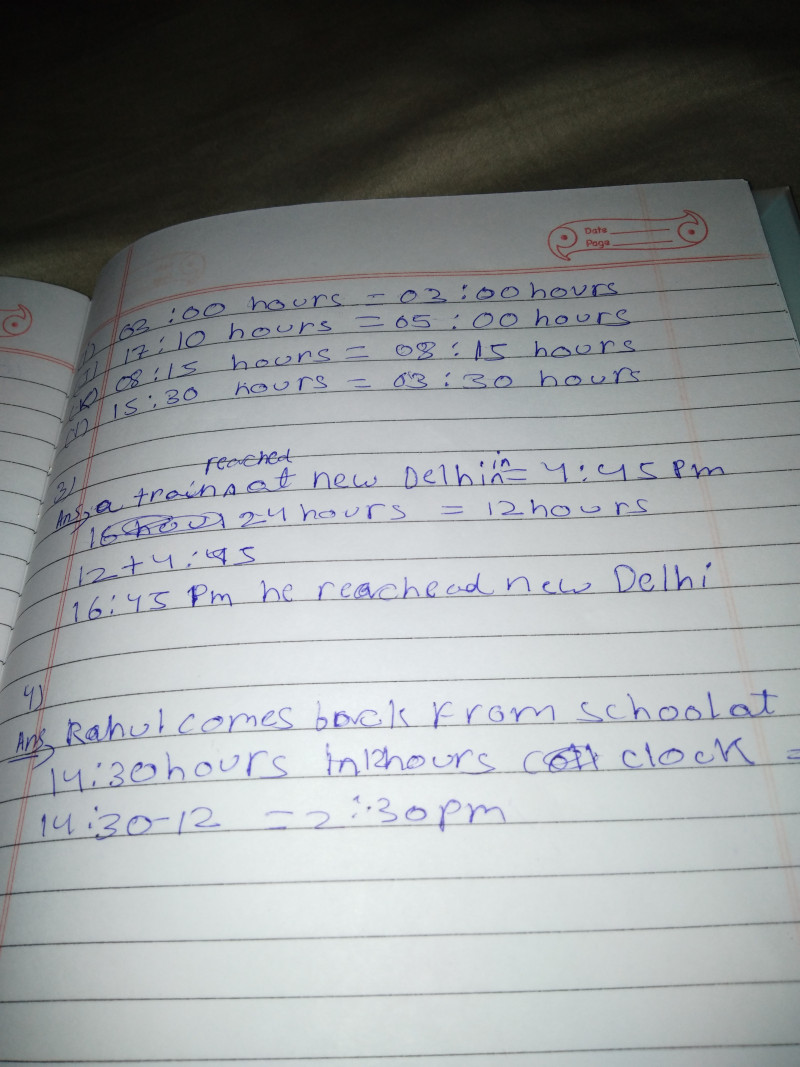 Date
Page
i) 03:00 hours = 03:00 hours
j) 17:10 hours = 05:00 hours
k) 08:15 hours = 08:15 hours
l) 15:30 hours = 03:30 hours
3)
reached
Ans, a train at new Delhi in = 4:45 Pm
16 24 hours = 12 hours
12 + 4:45
16:45 Pm he reachead new Delhi
4)
Ans, Rahul comes back From school at
14:30 hours In 12 hours clock =
14:30-12 = 2:30 pm